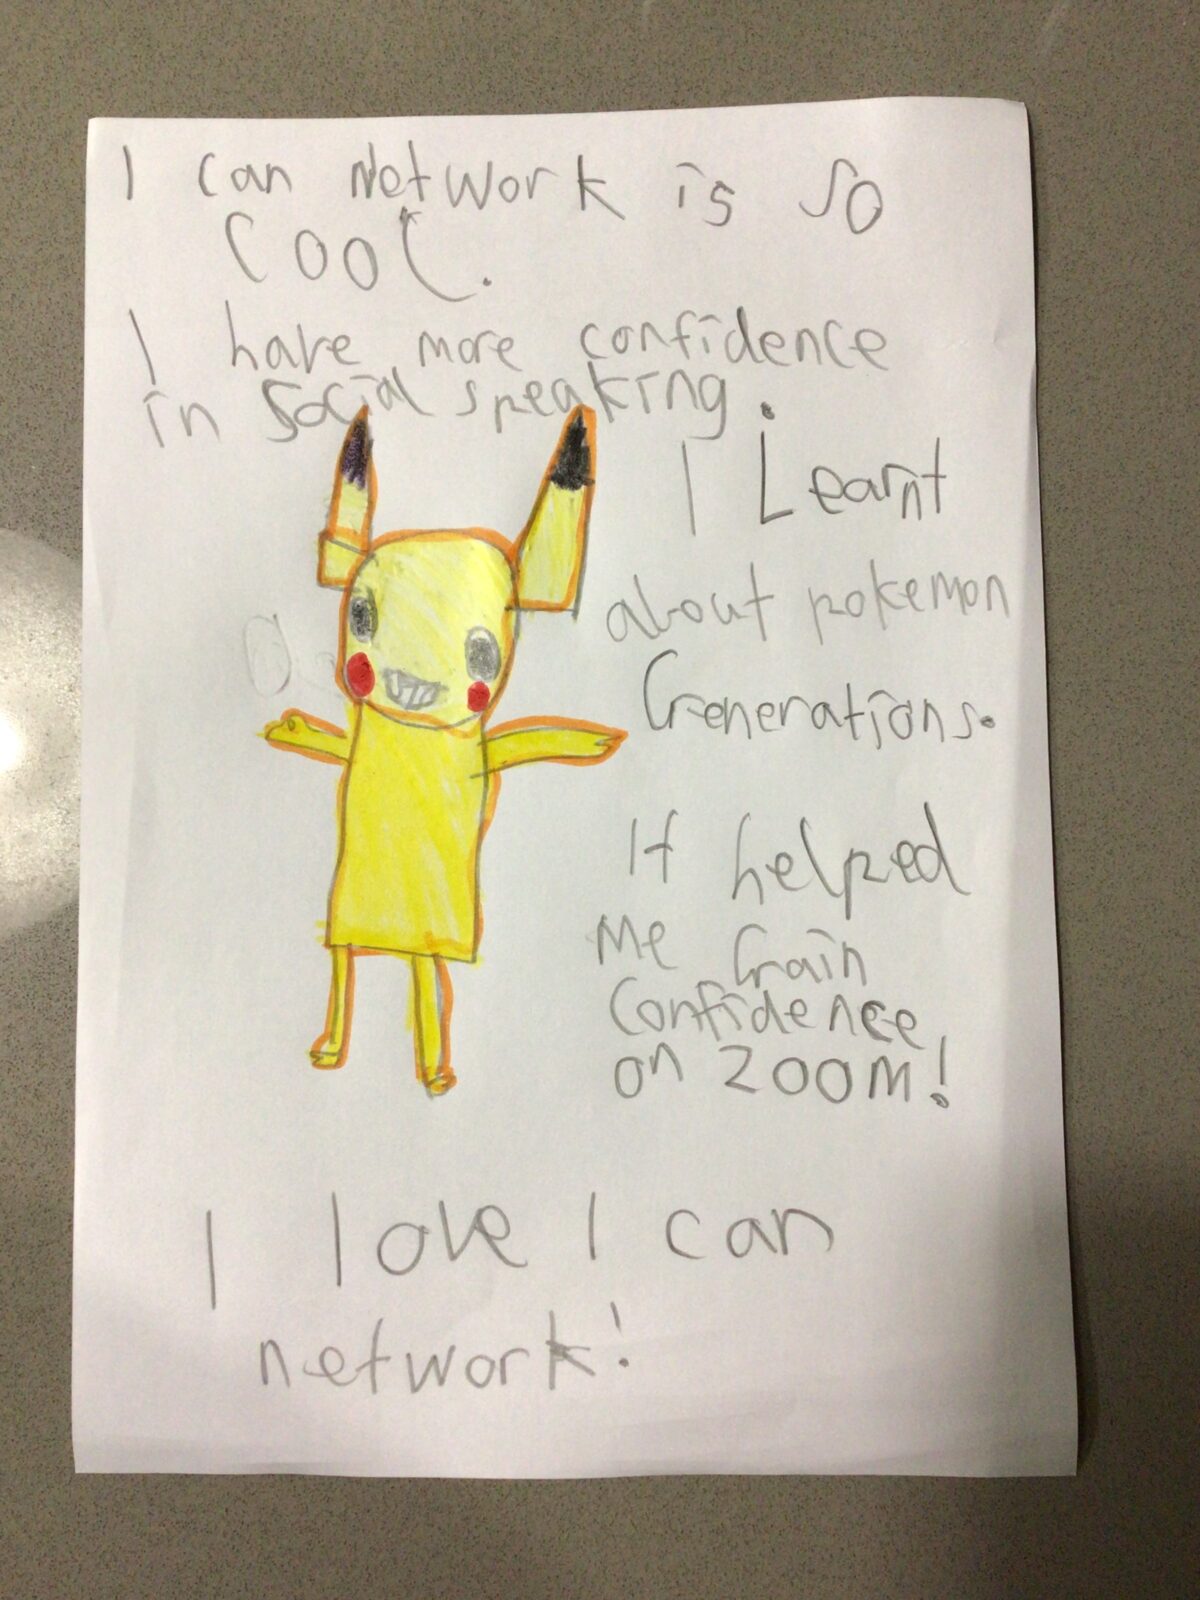 I can Network is so
cool.
I have more confidence
in social speaking.
I Learnt
about pokemon
Generations.
It helped
me Gain
confidence
on zoom!
I love I can
network!